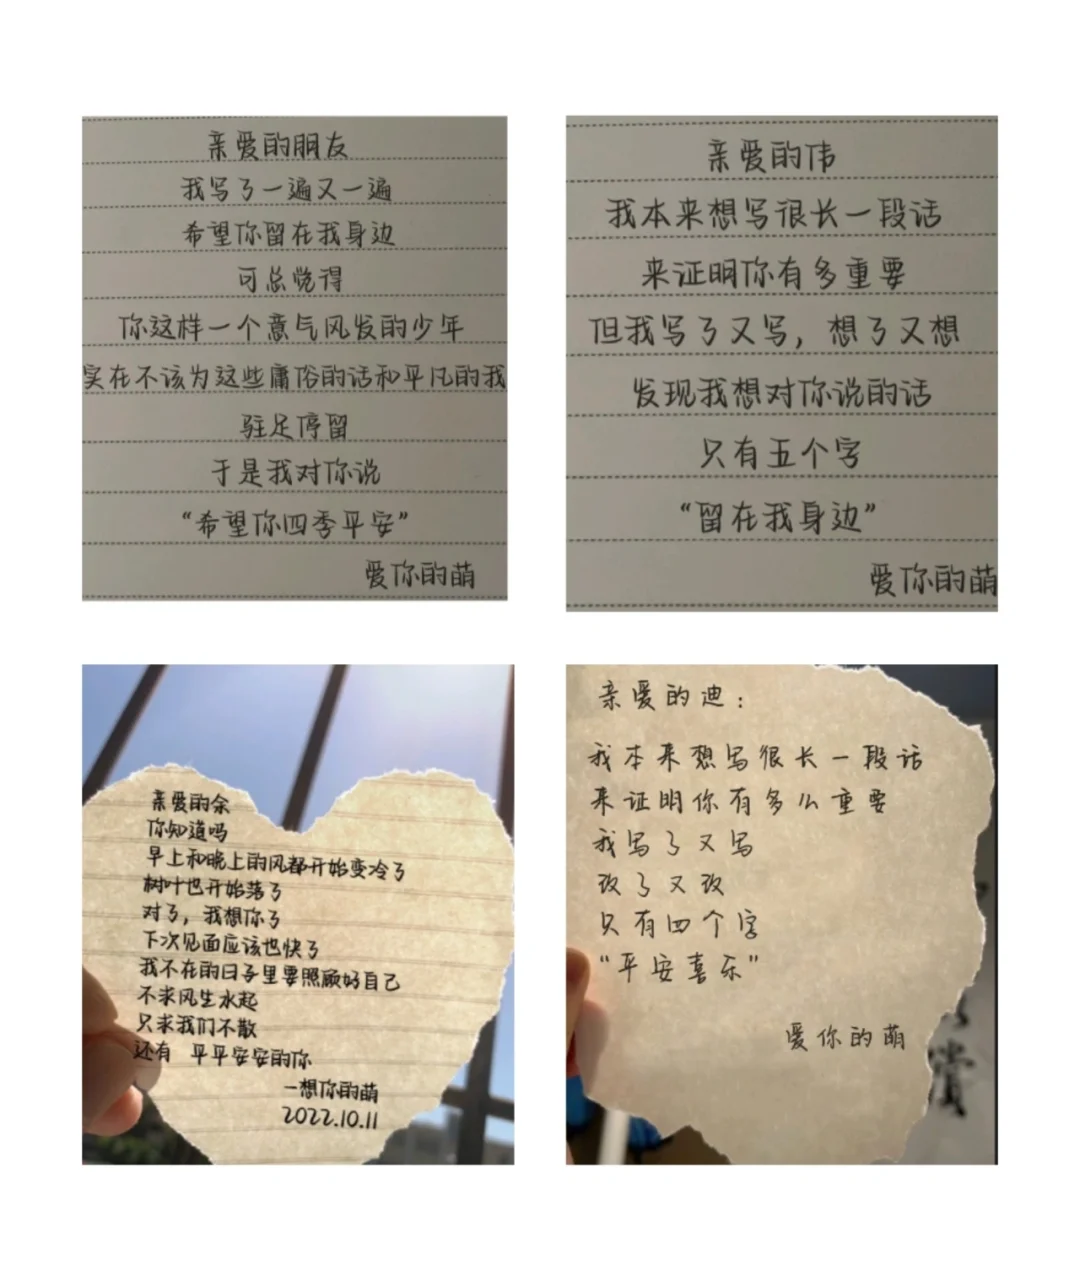 亲爱的朋友
我写了一遍又一遍
希望你留在我身边
可总觉得
你这样一个意气风发的少年
实在不该为这些庸俗的话和平凡的我
驻足停留
于是我对你说
“希望你四季平安”
爱你的萌
亲爱的伟
我本来想写很长一段话
来证明你有多重要
但我写了又写，想了又想
发现我想对你说的话
只有五个字
“留在我身边”
爱你的萌
亲爱的余
你知道吗
早上和晚上的风都开始变冷了
树叶也开始落了
对了，我想你了
下次见面应该也快了
我不在的日子里要照顾好自己
不求风生水起
只求我们不散
还有 平平安安的你
一想你的萌
2022.10.11
亲爱的迪：
我本来想写很长一段话
来证明你有多么重要
我写了又写
改了又改
只有四个字
“平安喜乐”
爱你的萌
赏